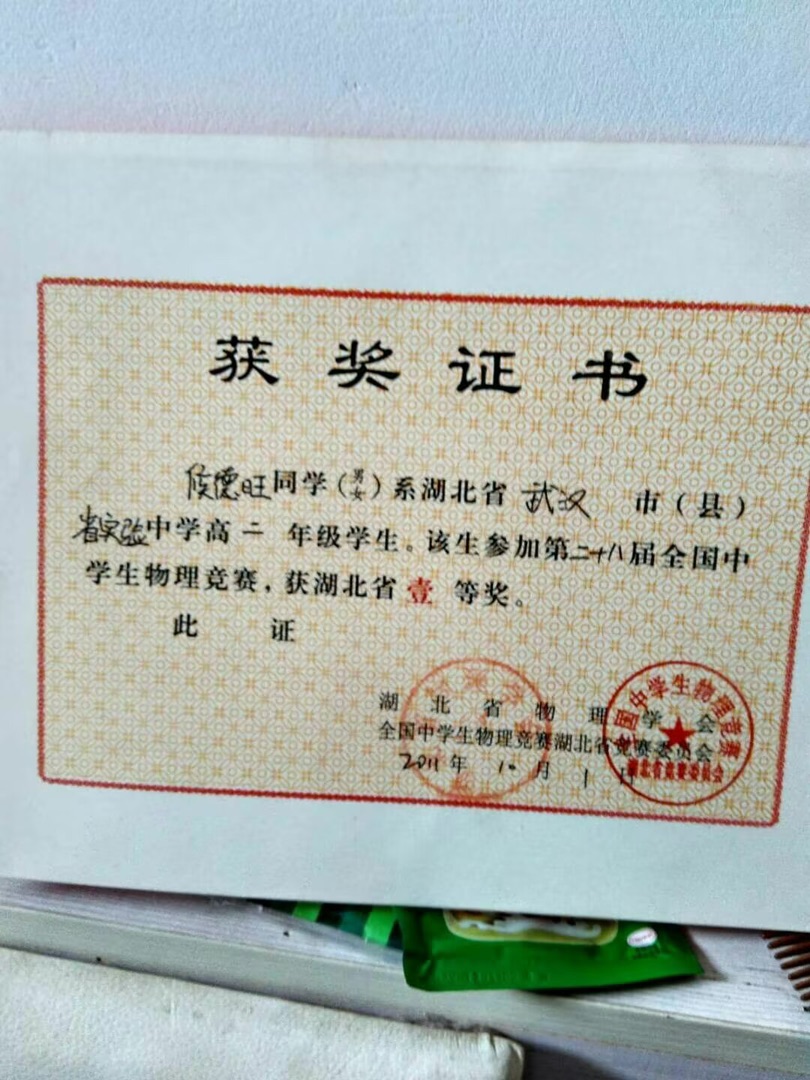 获奖证书
侯德旺同学（男女）系湖北省武汉市（县）
省实验中学高二年级学生。该生参加第二十八届全国中
学生物理竞赛，获湖北省壹等奖。
此证
湖北省物理学会
全国中学生物理竞赛湖北省竞赛委员会
2011年10月1日
全国中学生物理竞赛
湖北省竞赛委员会